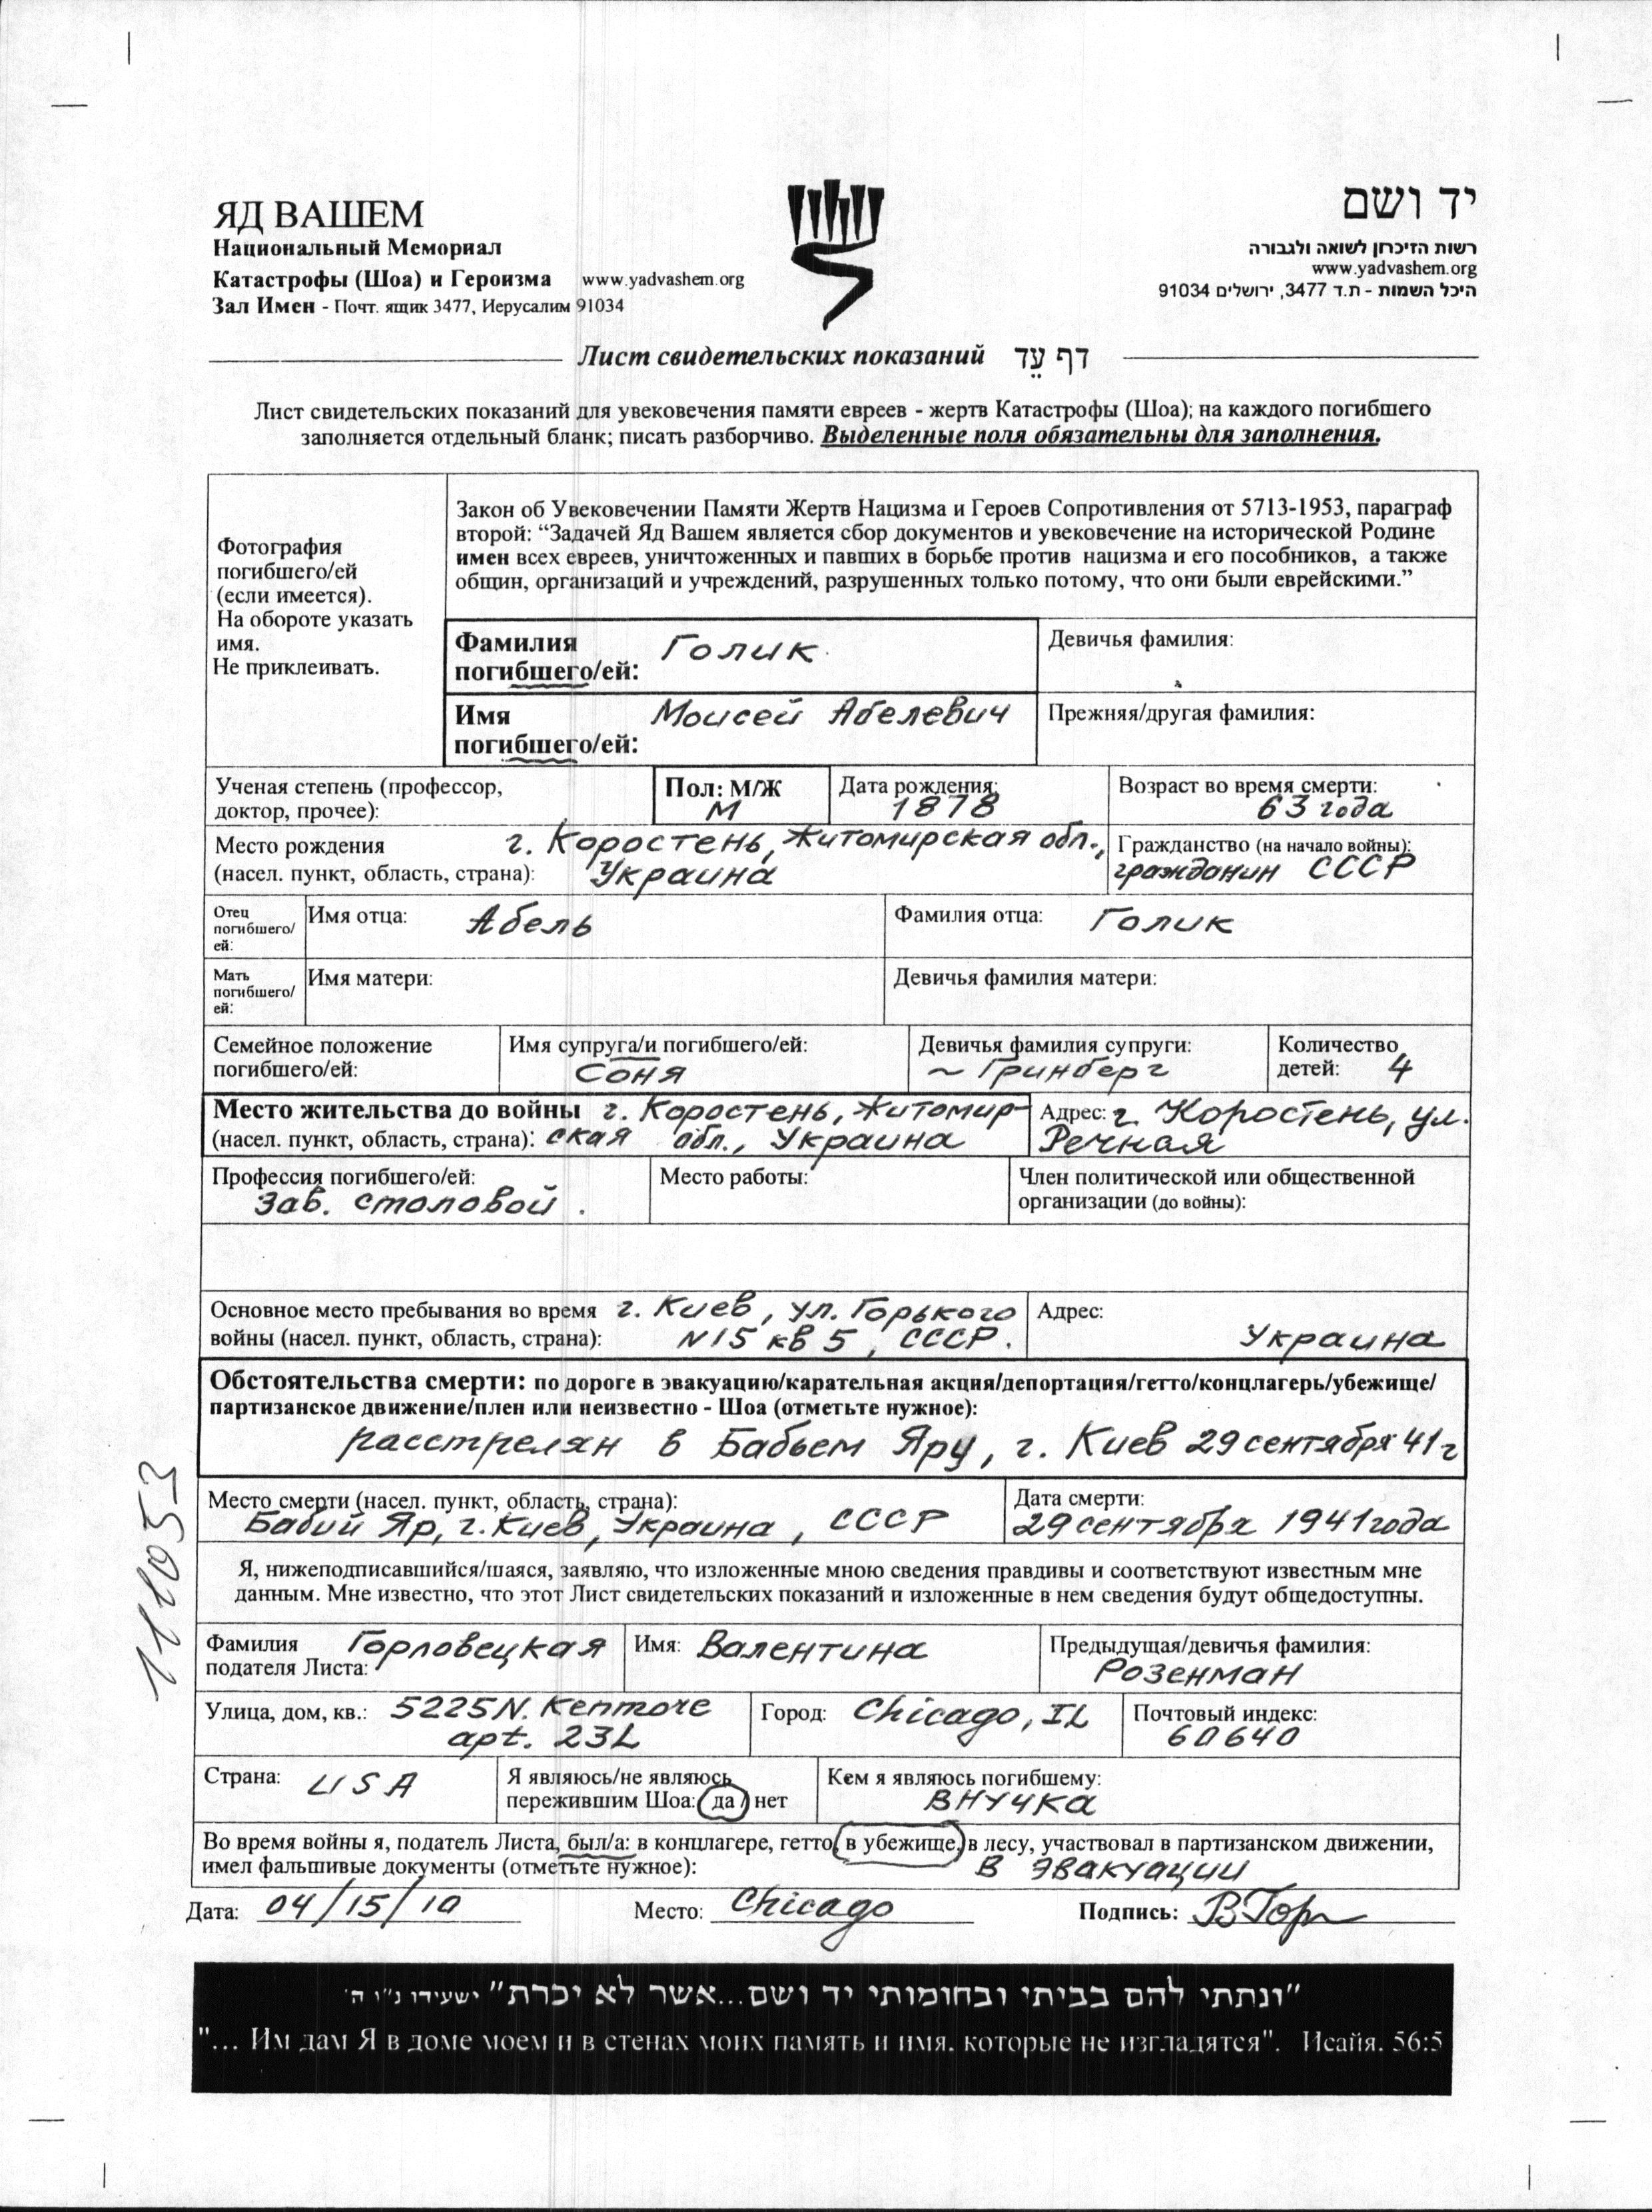 ЯД ВАШЕМ
Национальный Мемориал
Катастрофы (Шоа) и Героизма www.yadvashem.org
Зал Имен - Почт. ящик 3477, Иерусалим 91034
יד ושם
רשות הזיכרון לשואה ולגבורה
www.yadvashem.org
היכל השמות - ת.ד 3477, ירושלים 91034
Лист свидетельских показаний דף עֵד
Лист свидетельских показаний для увековечения памяти евреев - жертв Катастрофы (Шоа); на каждого погибшего
заполняется отдельный бланк; писать разборчиво. Выделенные поля обязательны для заполнения.
Фотография
погибшего/ей
(если имеется).
На обороте указать
имя.
Не приклеивать.
Закон об Увековечении Памяти Жертв Нацизма и Героев Сопротивления от 5713-1953, параграф
второй: “Задачей Яд Вашем является сбор документов и увековечение на исторической Родине
имен всех евреев, уничтоженных и павших в борьбе против нацизма и его пособников, а также
общин, организаций и учреждений, разрушенных только потому, что они были еврейскими.”
Фамилия
погибшего/ей: Голик
Девичья фамилия:
Имя
погибшего/ей: Моисей Абелевич
Прежняя/другая фамилия:
Ученая степень (профессор,
доктор, прочее):
Пол: М/Ж
М
Дата рождения:
1878
Возраст во время смерти:
63 года
Место рождения г. Коростень, Житомирская обл.,
(насел. пункт, область, страна): Украина
Гражданство (на начало войны):
гражданин СССР
Отец
погибшего/
ей:
Имя отца: Абель
Фамилия отца: Голик
Мать
погибшего/
ей:
Имя матери:
Девичья фамилия матери:
Семейное положение
погибшего/ей:
Имя супруга/и погибшего/ей:
Соня
Девичья фамилия супруги:
~ Гринберг
Количество
детей: 4
Место жительства до войны г. Коростень, Житомир-
(насел. пункт, область, страна): ская обл., Украина
Адрес: г. Коростень, ул.
Речная
Профессия погибшего/ей:
Зав. столовой.
Место работы:
Член политической или общественной
организации (до войны):
Основное место пребывания во время г. Киев, ул. Горького
войны (насел. пункт, область, страна): N15 кв 5, СССР.
Адрес:
Украина
Обстоятельства смерти: по дороге в эвакуацию/карательная акция/депортация/гетто/концлагерь/убежище/
партизанское движение/плен или неизвестно - Шоа (отметьте нужное):
расстрелян в Бабьем Яру, г. Киев 29 сентября 41 г
Место смерти (насел. пункт, область, страна):
Бабий Яр, г. Киев, Украина, СССР
Дата смерти:
29 сентября 1941 года
111053
Я, нижеподписавшийся/шаяся, заявляю, что изложенные мною сведения правдивы и соответствуют известным мне
данным. Мне известно, что этот Лист свидетельских показаний и изложенные в нем сведения будут общедоступны.
Фамилия
подателя Листа: Горловецкая
Имя: Валентина
Предыдущая/девичья фамилия:
Розенман
Улица, дом, кв.: 5225 N. Kenmore
apt. 23L
Город: Chicago, IL
Почтовый индекс:
60640
Страна: USA
Я являюсь/не являюсь
пережившим Шоа: да / нет
Кем я являюсь погибшему:
внучка
Во время войны я, податель Листа, был/а: в концлагере, гетто, в убежище, в лесу, участвовал в партизанском движении,
имел фальшивые документы (отметьте нужное): в эвакуации
Дата: 04/15/10 Место: Chicago Подпись: ВГор
"ונתתי להם בביתי ובחומותי יד ושם...אשר לא יכרת" ישעיהו נ"ו ה'
"... Им дам Я в доме моем и в стенах моих память и имя. которые не изгладятся". Исайя. 56:5